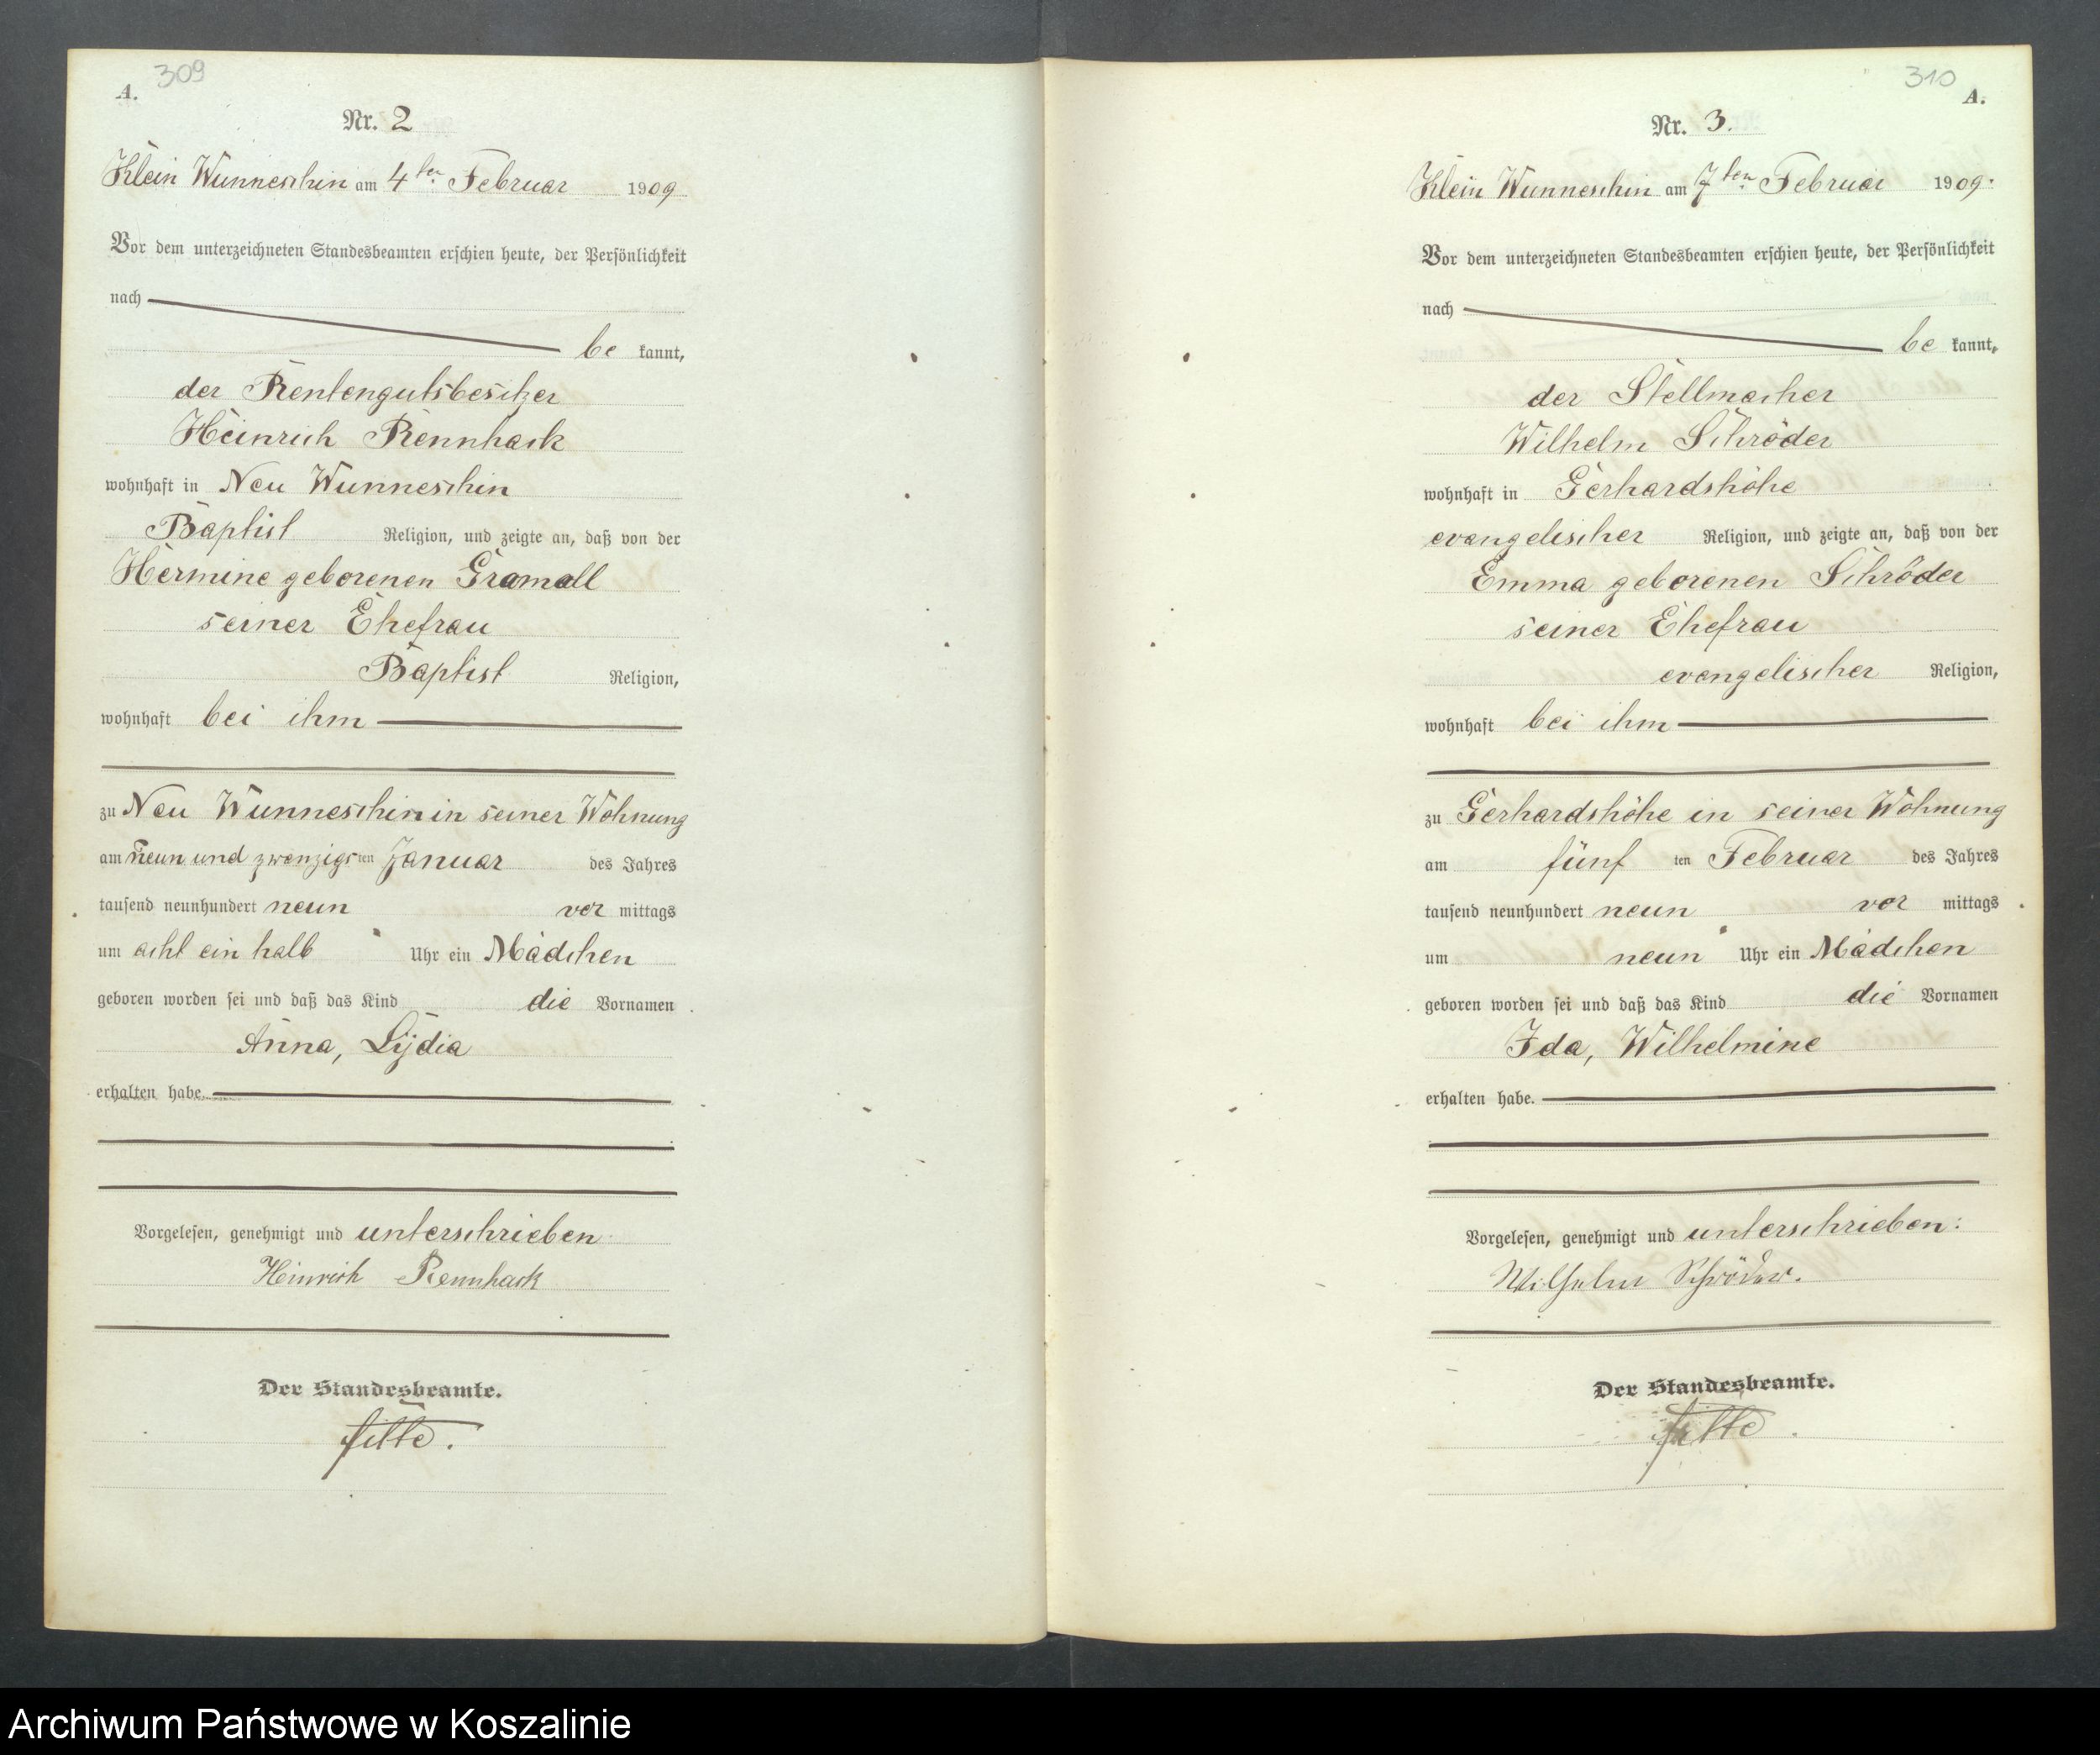 A. 309
Nr. 2
Klein Wunneschin am 4ten Februar 1909
Vor dem unterzeichneten Standesbeamten erschien heute, der Persönlichkeit
nach
be kannt,
der Rentengutsbesitzer
Heinrich Rennhack
wohnhaft in Neu Wunneschin
Baptist Religion, und zeigte an, daß von der
Hermine geborenen Gramall
seiner Ehefrau
Baptist Religion,
wohnhaft bei ihm
zu Neu Wunneschin in seiner Wohnung
am neun und zwanzigsten Januar des Jahres
tausend neunhundert neun vor mittags
um acht ein halb Uhr ein Mädchen
geboren worden sei und daß das Kind die Vornamen
Anna, Lydia
erhalten habe.
Vorgelesen, genehmigt und unterschrieben
Heinrich Rennhack
Der Standesbeamte.
310 A.
Nr. 3.
Klein Wunneschin am 7ten Februar 1909.
Vor dem unterzeichneten Standesbeamten erschien heute, der Persönlichkeit
nach
be kannt,
der Stellmacher
Wilhelm Schröder
wohnhaft in Gerhardshöhe
evangelischer Religion, und zeigte an, daß von der
Emma geborenen Schröder
seiner Ehefrau
evangelischer Religion,
wohnhaft bei ihm
zu Gerhardshöhe in seiner Wohnung
am fünf ten Februar des Jahres
tausend neunhundert neun vor mittags
um neun Uhr ein Mädchen
geboren worden sei und daß das Kind die Vornamen
Ida, Wilhelmine
erhalten habe.
Vorgelesen, genehmigt und unterschrieben:
Wilhelm Schröder.
Der Standesbeamte.
Archiwum Państwowe w Koszalinie